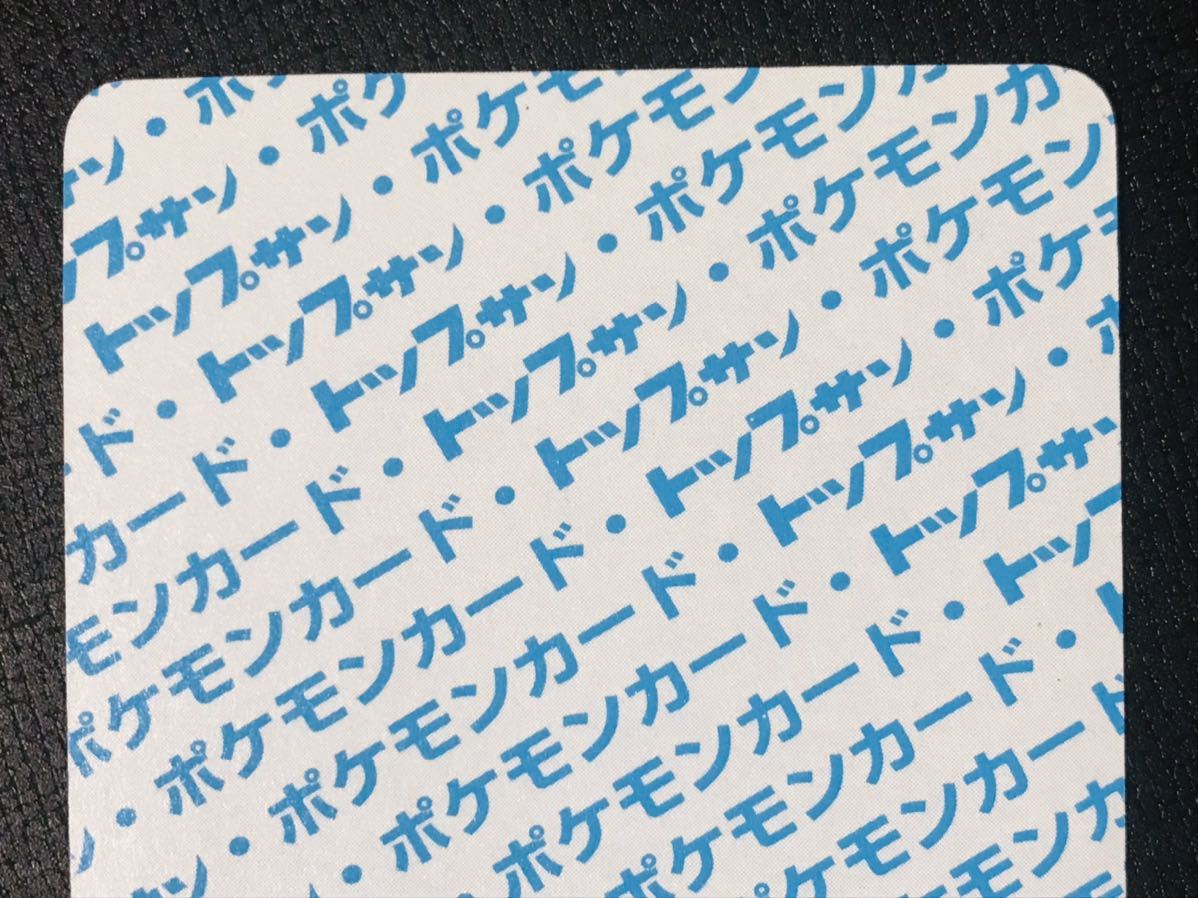 ン・ポ
ップサン・ポケ
トップサン・ポケモ
ド・トップサン・ポケモン
カード・トップサン・ポケモン
モンカード・トップサン・ポケモンカ
ポケモンカード・トップサン・ポケモン
ン・ポケモンカード・トップサン・ポケ
サン・ポケモンカード・トップサン・ポ
・ポケモンカード・トップサ
ポケモンカード・トッ
ポケモンカード・
ケモンカード
モンカ